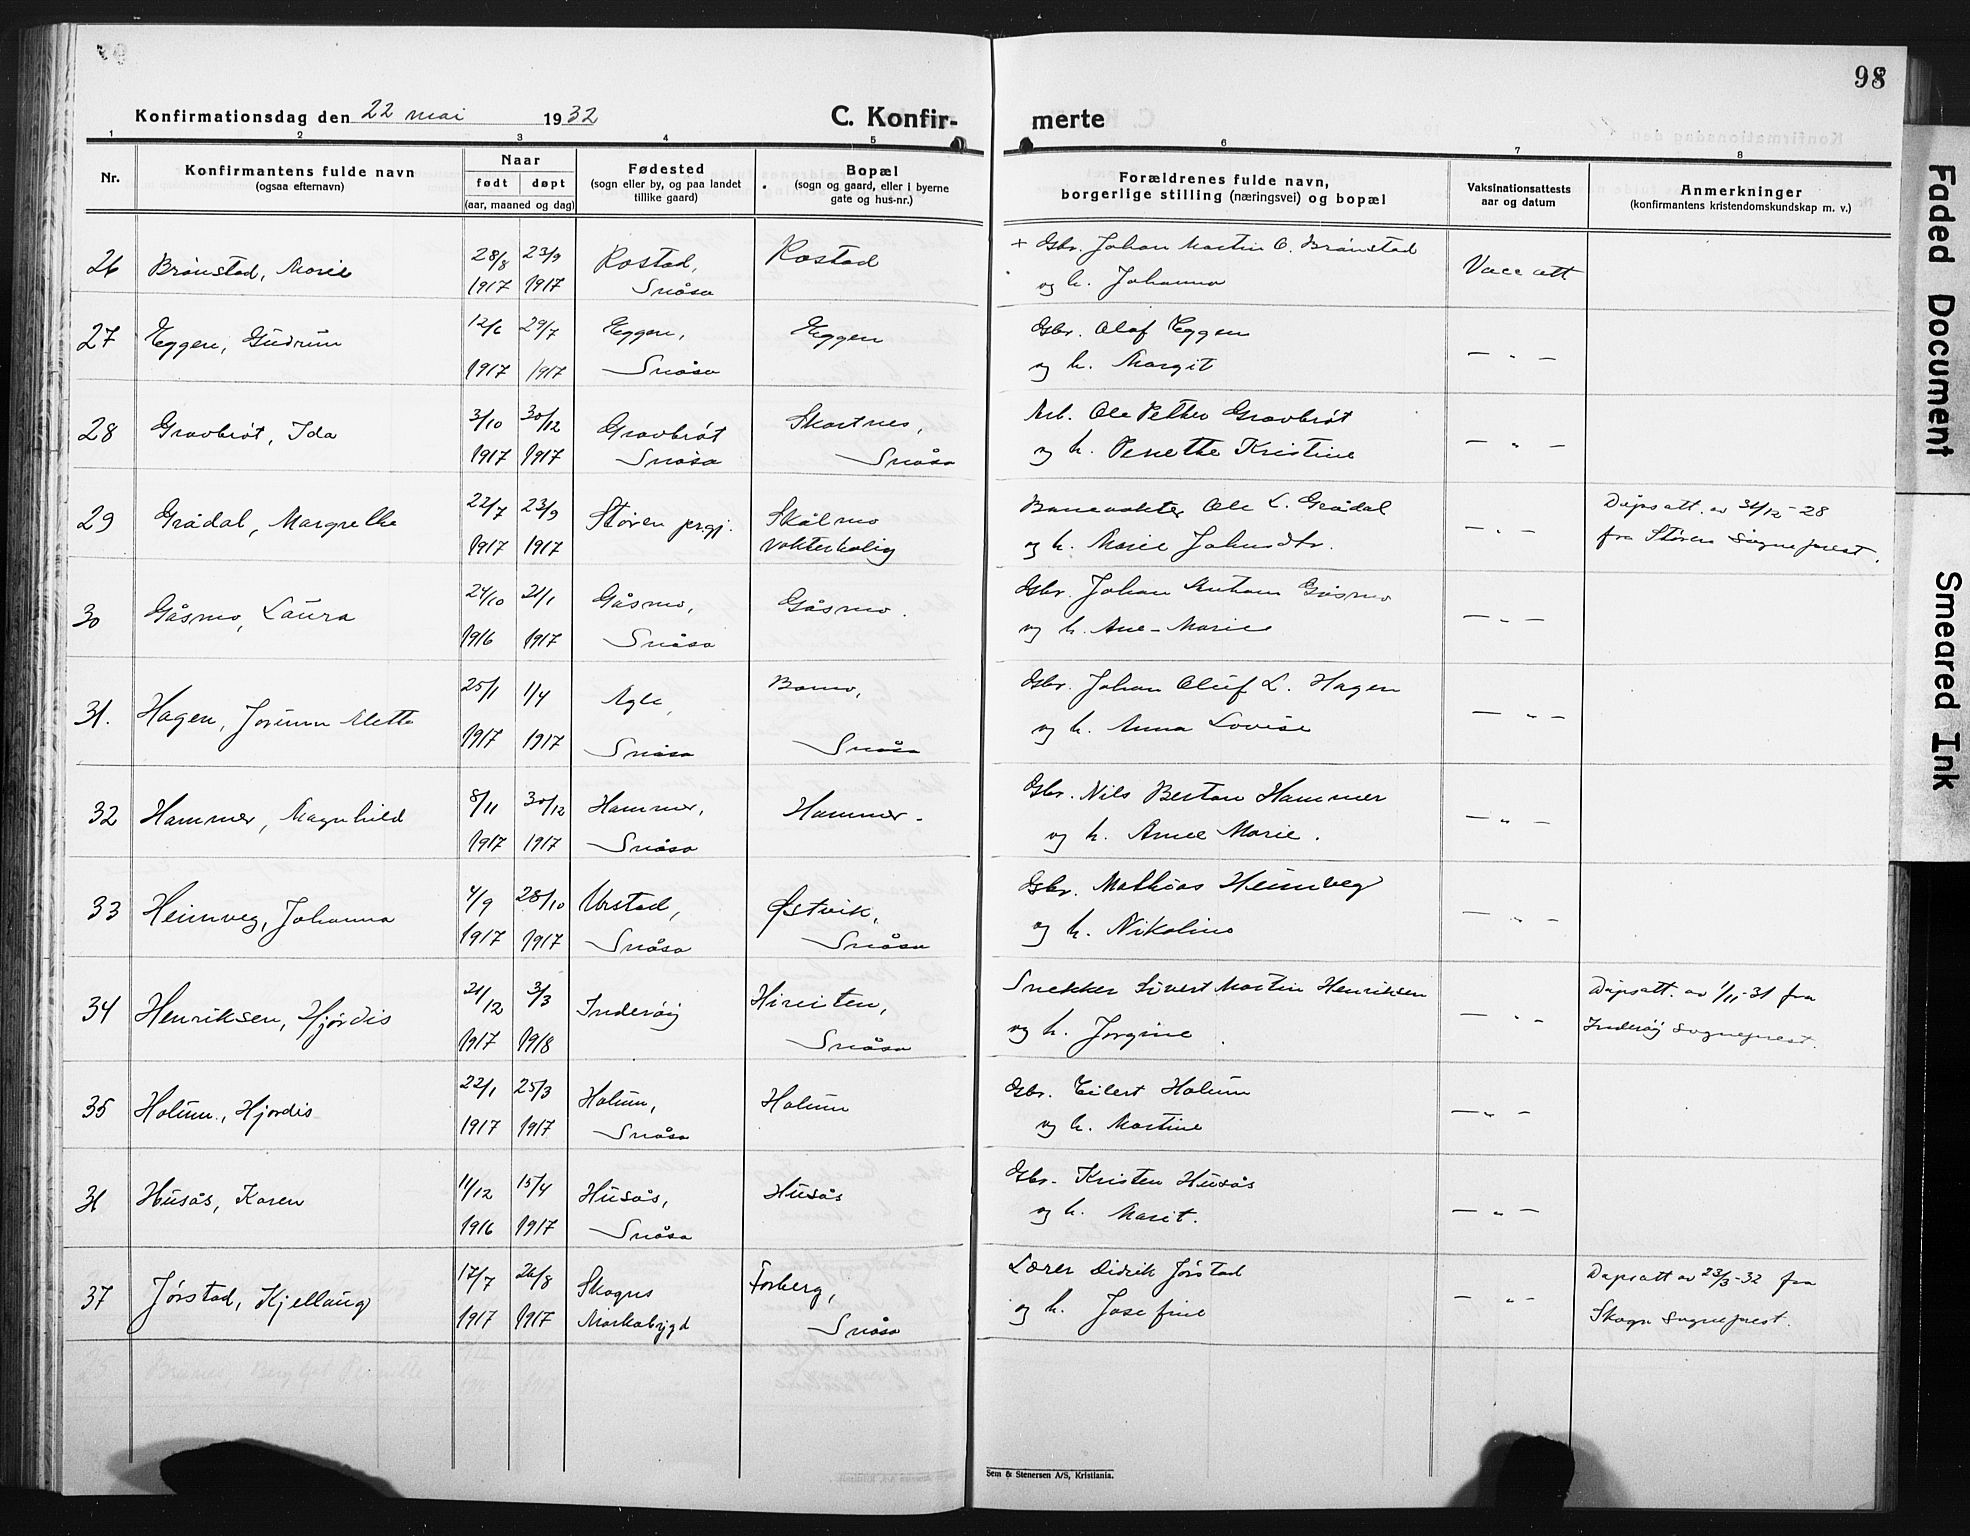 98
Konfirmationsdag den 22 mai 1932
C. Konfir-merte
1 2 3 4 5 6 7 8
Nr.
Konfirmantens fulde navn
(ogsaa efternavn)
Naar
født døpt
(aar, maaned og dag)
Fødested
(sogn eller by, og paa landet
tillike gaard)
Bopæl
(sogn og gaard, eller i byerne
gate og hus-nr.)
Forældrenes fulde navn,
borgerlige stilling (næringsvei) og bopæl
Vaksinationsattests
aar og datum
Anmerkninger
(konfirmantens kristendomskundskap m. v.)
26 Brønstad, Marie 28/8 23/9 Rostad, Rostad + Gbr. Johan Martin O. Brønstad Vacc att
1917 1917 Snåsa og h. Johanna
27 Eggen, Gudrun 12/6 29/7 Eggen, Eggen Gbr. Olaf Eggen — " —
1917 1917 Snåsa og h. Margit
28 Gravbrøt, Ida 3/10 30/12 Gravbrøt Skartnes, Arb. Ole Petter Gravbrøt — " —
1917 1917 Snåsa Snåsa og h. Penethe Kristine
29 Grådal, Margrethe 22/7 23/9 Støren prgj. Skålmo Banevokter Ole L. Grådal — " — Dåpsatt. av 31/12-28
1917 1917 vokterbolig og h. Marie Johnsdtr. fra Støren sogneprest.
30 Gåsmo, Laura 24/10 21/1 Gåsmo, Gåsmo. Gbr. Johan Antam Gåsmo — " —
1916 1917 Snåsa og h. Ane-Marie
31. Hagen, Jorunn Mette 25/1 1/4 Agle, Bomo, Gbr. Johan Oluf L. Hagen — " —
1917 1917 Snåsa Snåsa og h. Anna Lovise
32 Hammer, Magnhild 8/11 30/12 Hammer, Hammer. Gbr. Nils Bertan Hammer — " —
1917 1917 Snåsa og h. Anne Marie.
33 Heimveg, Johanna 4/9 28/10 Vrstad, Østvik, Gbr. Mathias Heimveg — " —
1917 1917 Snåsa Snåsa og h. Nikoline
34 Henriksen, Hjørdis 21/12 3/3 Inderøy Hireiten, Snekker Sivert Martin Henriksen — " — Dåpsatt. av 1/11-31 fra
1917 1918 Snåsa og h. Jorgine. Inderøy sogneprest.
35 Holum, Hjordis 22/1 25/3 Holum, Holum Gbr. Eilert Holum — " —
1917 1917 Snåsa og h. Martine
36 Husås, Karen 11/12 15/4 Husås, Husås Gbr. Kristen Husås — " —
1916 1917 Snåsa og h. Marit.
37 Jørstad, Kjellaug 17/7 26/8 Skogns Forberg, Lærer Didrik Jørstad — " — Dåpsatt av 23/3-32 fra
1917 1917 Markabygd Snåsa og h. Josefine Skogn sogneprest.
Sem & Stenersen A/S, Kristiania.
Faded Document
Smeared Ink